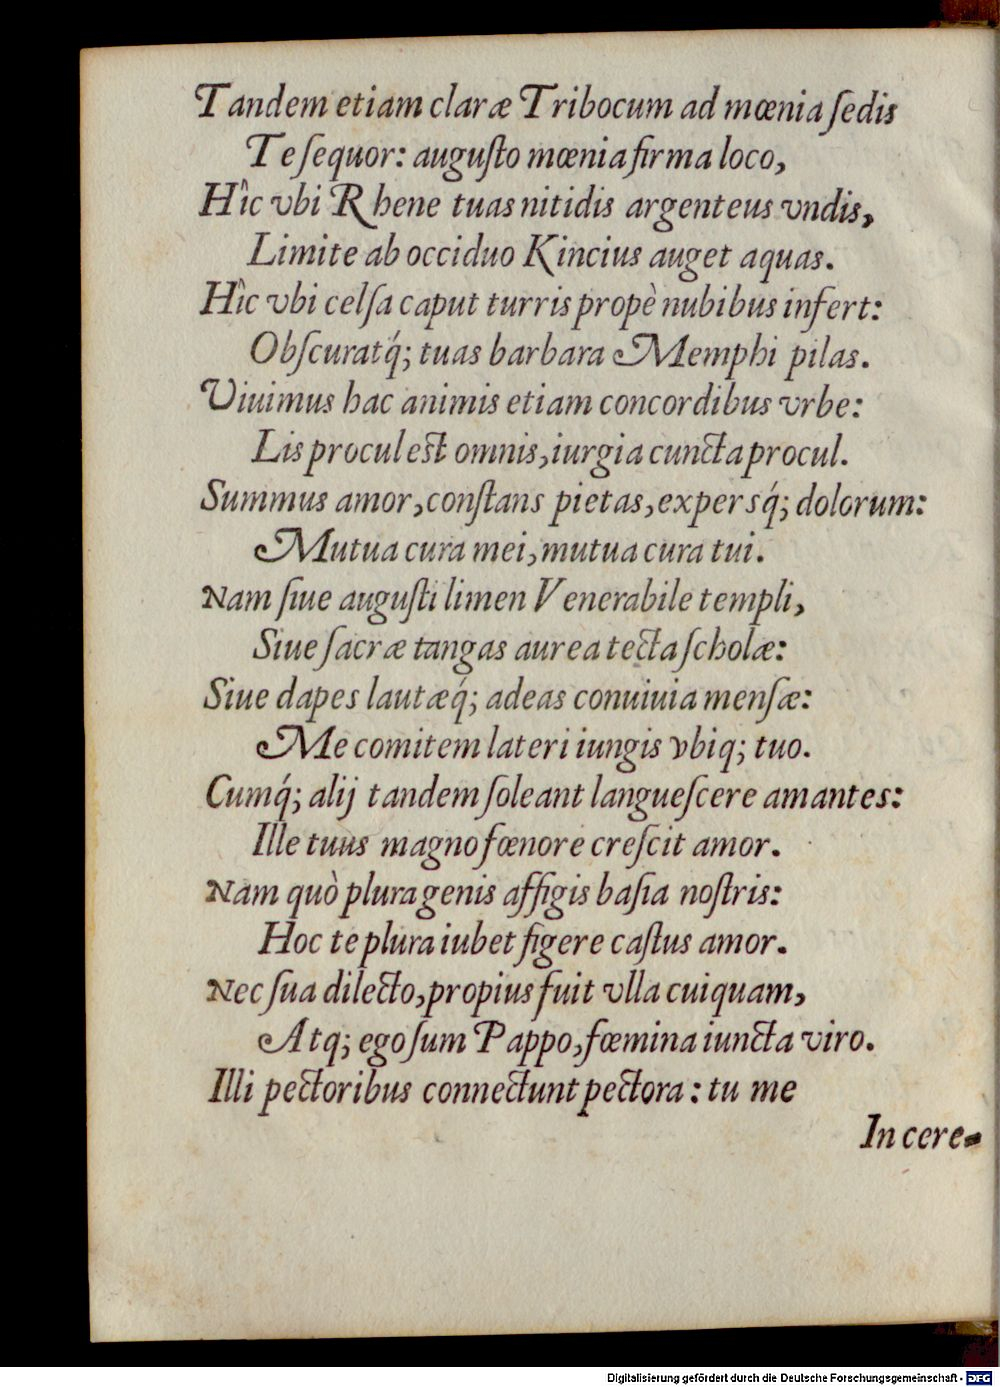 Tandem etiam claræ Tribocum ad mœnia ſedis
Te ſequor: auguſto mœnia firma loco,
Hîc vbi Rhene tuas nitidis argenteus vndis,
Limite ab occiduo Kincius auget aquas.
Hîc vbi celſa caput turris propè nubibus infert:
Obſcuratq́; tuas barbara Memphi pilas.
Viuimus hac animis etiam concordibus vrbe:
Lis procul eſt omnis, iurgia cuncta procul.
Summus amor, conſtans pietas, expersq́; dolorum:
Mutua cura mei, mutua cura tui.
Nam ſiue auguſti limen Venerabile templi,
Siue ſacræ tangas aurea tecta ſcholæ:
Siue dapes lautæq́; adeas conuiuia menſæ:
Me comitem lateri iungis vbiq; tuo.
Cumq́; alij tandem ſoleant langueſcere amantes:
Ille tuus magno fœnore creſcit amor.
Nam quò plura genis affigis baſia noſtris:
Hoc te plura iubet figere caſtus amor.
Nec ſua dilecto, propius fuit vlla cuiquam,
Atq; ego ſum Pappo, fœmina iuncta viro.
Illi pectoribus connectunt pectora: tu me
In cere-
Digitalisierung gefördert durch die Deutsche Forschungsgemeinschaft - DFG